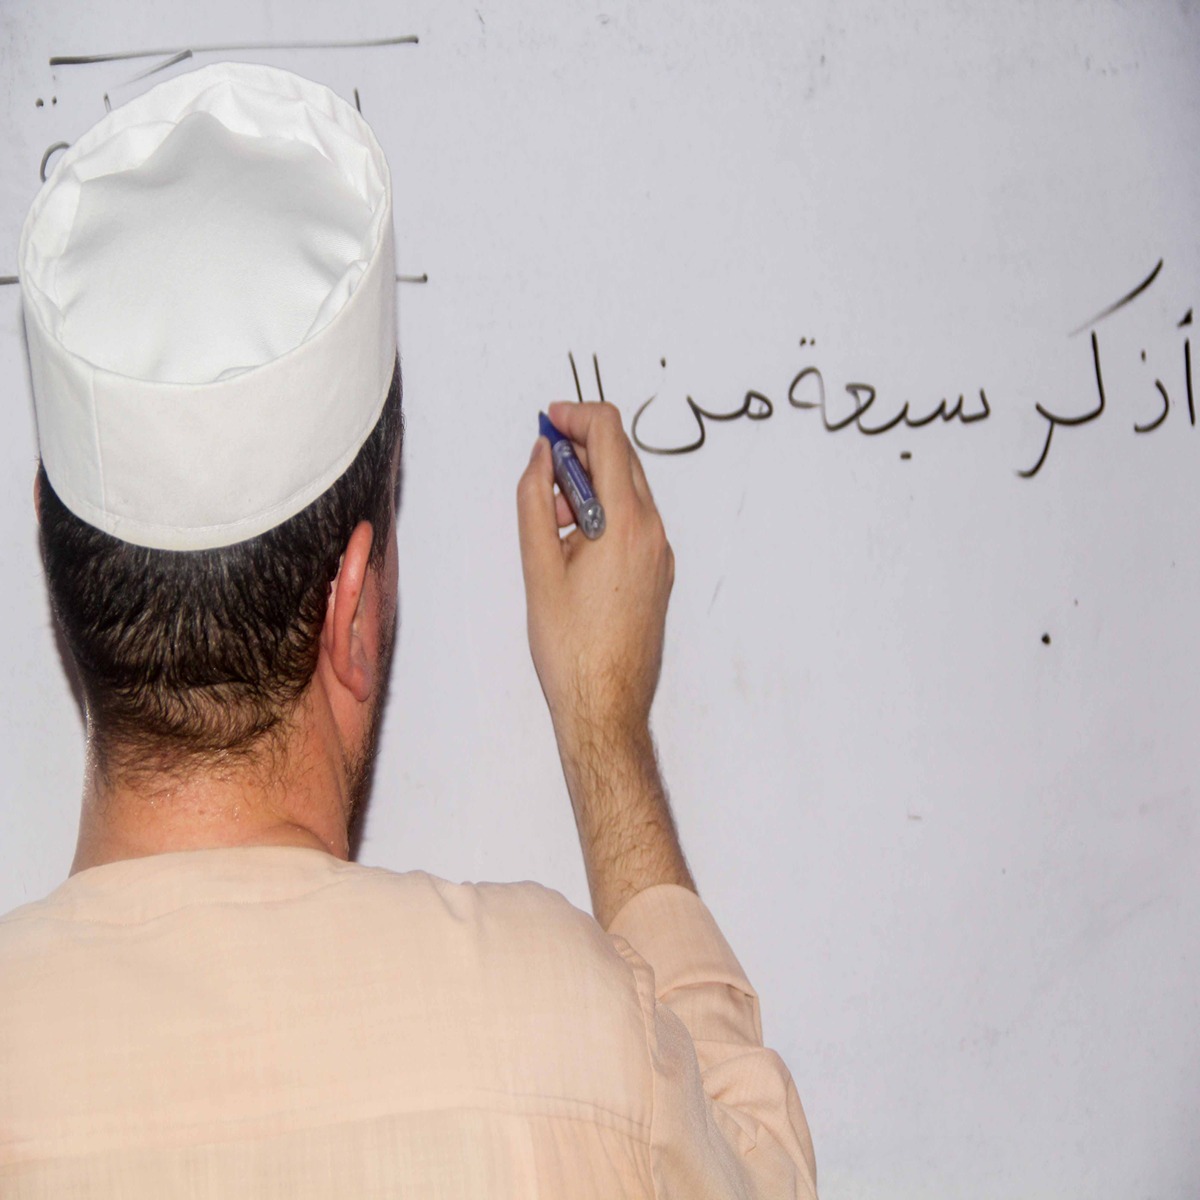 أذكر سبعة من ال